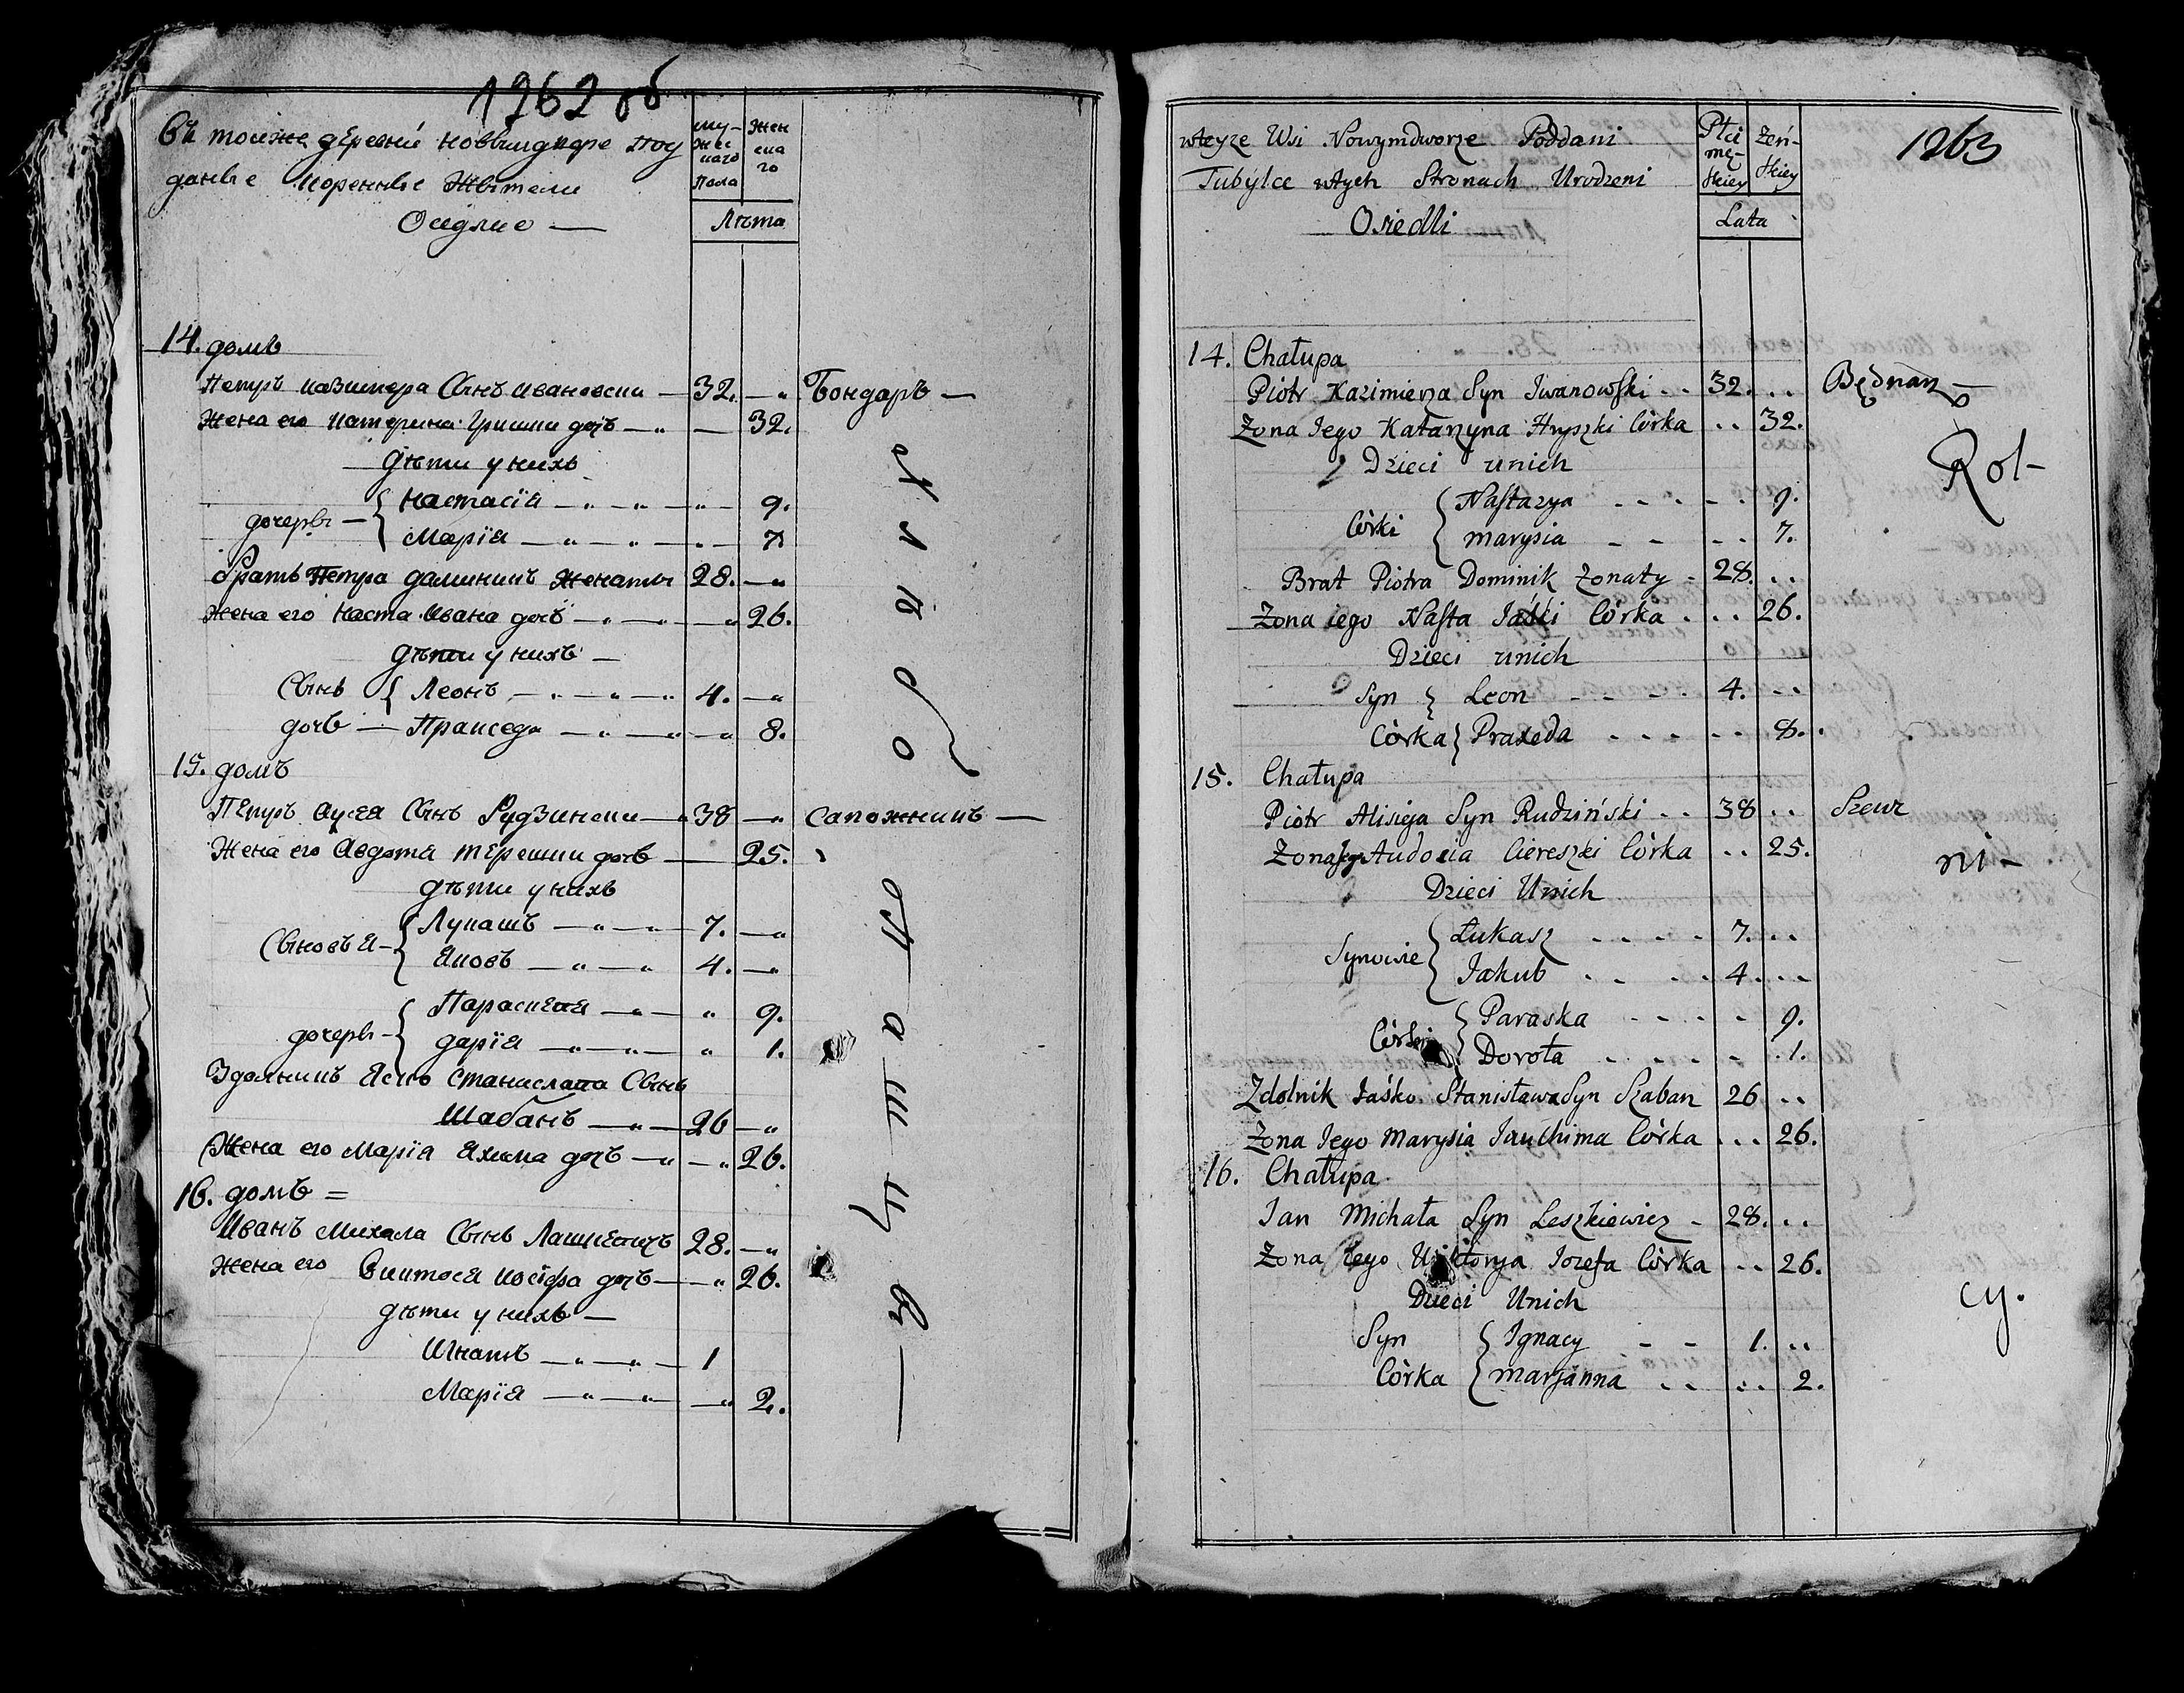 1262 об
Въ тоиже дЕревнѣ новвимдворе Под
даные Коренные Жытели
Оседлые —
му-
жес
каго
Пола
Жен
ска
го
Лѣта
14. домъ
Петръ казимера Сынъ Ивановски — 32. — „ Бондаръ —
Жена его Катерина Гришки дочь — „ — 32.
дѣти у нихъ
дочеры — { Настасїя — „ — „ — „ — 9.
Марїя — „ — „ — „ — 7.
братъ Петра даминикъ женаты 28. — „
Жена его Наста Ивана дочь — „ — „ — „ 26.
дѣти у нихъ —
Сынъ { Леонъ — „ — „ — „ 4. — „
дочь — Пракседа — „ — „ — „ 8.
15. домъ
ПЕтръ аусЕя Сынъ Рудзински — „ 38 — „ сапожникъ —
Жена его Авдотя тЕрешки дочь — 25.
дѣти у нихъ
СыновьЯ — { Лукашъ — „ — „ — 7. — „
Яковъ — „ — „ 4. — „
дочеры — { ПараскЕвЯ — „ — „ 9.
дарїя — „ — „ — „ 1.
Здолникъ Ясько Станислава Сынъ
Шабанъ — „ — 26 — „
Жена его Марїя Яхима дочъ — „ — „ 26.
16. домъ =
Иванъ Михала Сынъ ЛашкЕвичъ 28. — „
Жена его Виктося иосїфа дочъ — „ 26.
дѣти у нихъ —
Игнатъ — „ — „ — 1
Марїя — „ — „ — „ 2.
1263
wteyże Wsi Nowymdworze Poddani
Tubylce wtych Stronach Urodzeni
Osiedli
Płci
mę-
skiey
Żeń-
skiey
Lata
14. Chałupa
Piotr Kazimierza Syn Iwanowski . . 32. . . Będnarz —
Żona Jego Katarzyna Hryszki Córka . . 32.
Dzieci unich
Rol-
Córki { Nastazya - - - - . . 9.
marysia - - - . . 7.
Brat Piotra Dominik Żonaty - 28. . .
Żona iego Nasta Jaśki Córka . . . 26.
Dzieci unich
Syn { Leon - - - - 4. - . .
Córka { Praxeda . . . - - - . 8.
15. Chałupa
Piotr Alisieja Syn Rudziński . . 38 . . Szewc
Żona Jego Audocia Ciereszki Córka . . 25.
ni-
Dzieci Unich
Synowie { Łukasz . - - - 7. . .
Jakub . . - . . 4 . . .
Córki { Paraska . - - - - 9.
Dorota . . - - - . 1.
Zdolnik Jaśko Stanisława Syn Szaban 26 . .
Żona Jego Marysia Jauchima Córka . . . 26.
16. Chałupa
Jan Michała Syn Leszkiewicz - 28. . .
Żona Jego Wiktorya Jozefa Córka . . 26.
cy.
Dzieci Unich
Syn { Ignacy - - 1. . .
Córka { marjanna . . . . 2.